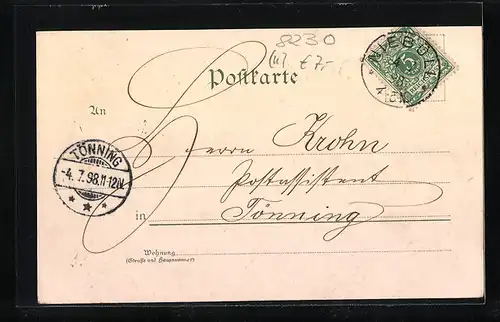 8230
(u) € 7,-
NIEBÜLL
98
4-5N
Postkarte
An
Herrn Krohn
Postassistent
in Tönning
TÖNNING
-4. 7. 98. 11-12N.
Wohnung
(Straße und Hausnummer)